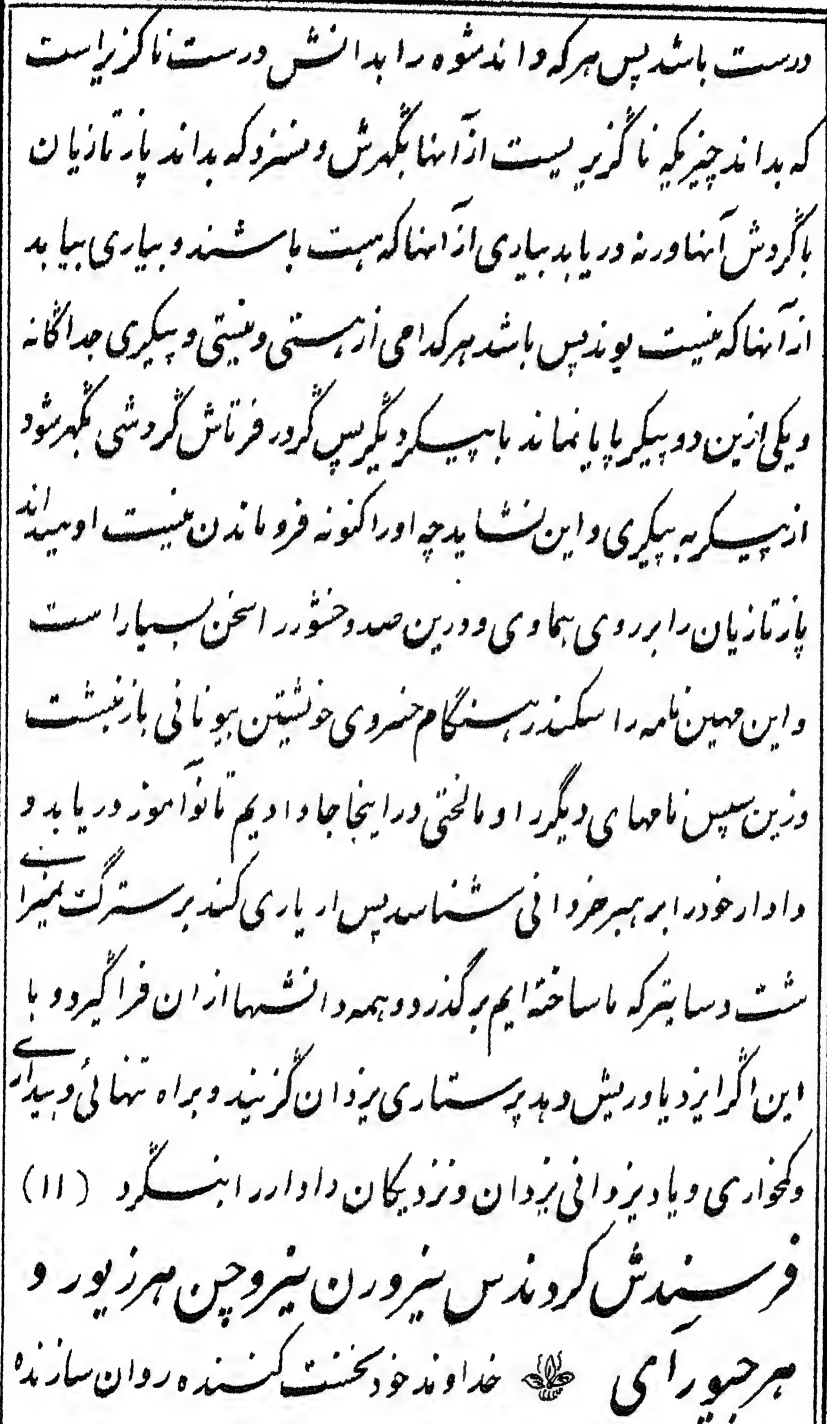 درست باشد پس هر که داند شوه را بدانش درست ناگزیر است
که بداند چیزیکه ناگزیریست از آنها بگهرش و نسزد که بداند پازتازیان
باگردش آنها ورنه دریابد بباری از آنها که هست باشند و بباری بیابد
از آنها که نیست بوند پس باشد هر کدامی از هستی و نیستی و پیکری جداگانه
و یکی ازین دو پیکر پایا نماند با پیکر دیگر پس گردد فرتاش گردشی بگهر شود
از پیکر به پیکری و این نشاید چه او را کنونه فروماندن نیست او میداند
پازتازیان را بر روی هماوی و درین صد وخشور را سخن بسیار است
و این مهین نامه را سکندر هنگام خسروی خویشتن بیونانی بازنبشت
وزین سپس نامهای دیگر را و ما لختی در اینجا جا دادیم تا نوآموز دریابد و
دادار خود را بر هبر خردانی شناسد پس ار یاری کند بر سترگ
شت دساتیر که ما ساخته ایم برگذرد و همه دانشها ازان فراگیرد و با
این اگر ایزد یاوریش دهد پرستاری یزدان گزیند و براه تنهائی و بیداری
و کمخواری و یاد یزدانی یزدان و نزدیکان دادار را بنگرد (۱۱)
فرسندش کردندس نیرورن نیروچن هرزیور و
هرجیورآمی خداوند خود نخست کننده روان سازنده